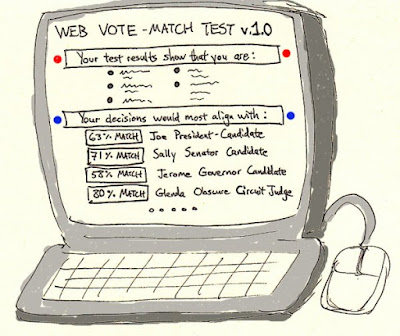 WEB VOTE-MATCH TEST v.1.0
Your test results show that you are:
Your decisions would most align with:
63% MATCH Joe President-Candidate
71% MATCH Sally Senator Candidate
58% MATCH Jerome Governor Candidate
80% MATCH Glenda Obscure Circuit Judge